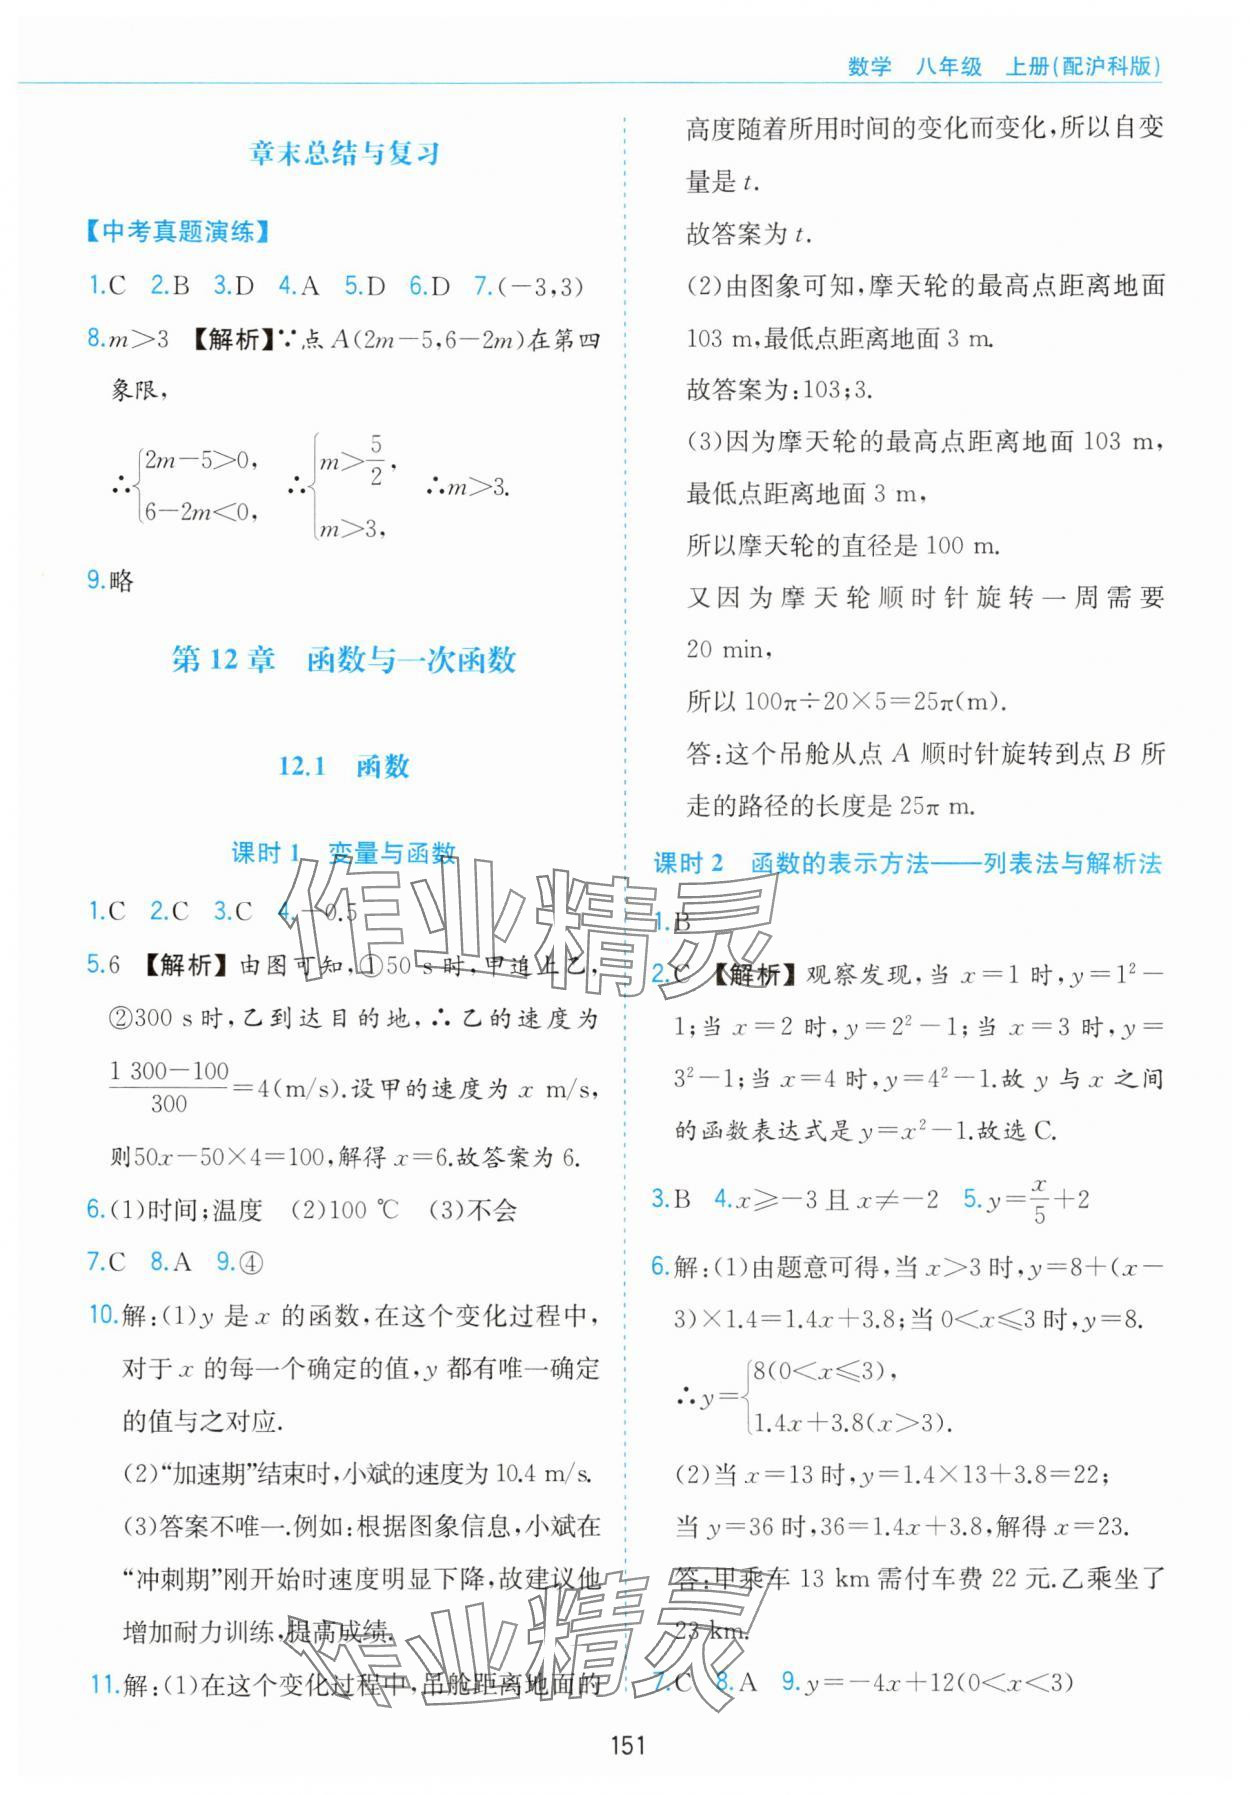 数学 八年级 上册(配沪科版)
章末总结与复习
【中考真题演练】
1.C 2.B 3.D 4.A 5.D 6.D 7.(-3,3)
8.m>3 【解析】∵点 A(2m-5,6-2m)在第四
象限,
∴{2m-5>0, 6-2m<0, ∴{m>5/2, m>3, ∴m>3.
9.略
第 12 章 函数与一次函数
12.1 函数
课时 1 变量与函数
1.C 2.C 3.C 4.-0.5
5.6 【解析】由图可知,①50 s时,甲追上乙,
②300 s时,乙到达目的地,∴乙的速度为
(1 300-100)/300=4(m/s).设甲的速度为 x m/s,
则50x-50×4=100,解得 x=6.故答案为 6.
6.(1)时间;温度 (2)100 ℃ (3)不会
7.C 8.A 9.④
10.解:(1)y 是 x 的函数,在这个变化过程中,
对于 x 的每一个确定的值,y 都有唯一确定
的值与之对应.
(2)“加速期”结束时,小斌的速度为 10.4 m/s.
(3)答案不唯一.例如:根据图象信息,小斌在
“冲刺期”刚开始时速度明显下降,故建议他
增加耐力训练,提高成绩.
11.解:(1)在这个变化过程中,吊舱距离地面的
高度随着所用时间的变化而变化,所以自变
量是 t.
故答案为 t.
(2)由图象可知,摩天轮的最高点距离地面
103 m,最低点距离地面 3 m.
故答案为:103;3.
(3)因为摩天轮的最高点距离地面 103 m,
最低点距离地面 3 m,
所以摩天轮的直径是 100 m.
又因为摩天轮顺时针旋转一周需要
20 min,
所以 100π÷20×5=25π(m).
答:这个吊舱从点 A 顺时针旋转到点 B 所
走的路径的长度是 25π m.
课时 2 函数的表示方法——列表法与解析法
1.B
2.C 【解析】观察发现,当 x=1 时,y=1²-
1;当 x=2 时,y=2²-1;当 x=3 时,y=
3²-1;当 x=4 时,y=4²-1.故 y 与 x 之间
的函数表达式是 y=x²-1.故选 C.
3.B 4.x≥-3 且 x≠-2 5.y=x/5+2
6.解:(1)由题意可得,当 x>3 时,y=8+(x-
3)×1.4=1.4x+3.8;当 0<x≤3 时,y=8.
∴y={8(0<x≤3), 1.4x+3.8(x>3).
(2)当 x=13 时,y=1.4×13+3.8=22;
当 y=36 时,36=1.4x+3.8,解得 x=23.
答:甲乘车 13 km 需付车费 22 元.乙乘坐了
23 km.
7.C 8.A 9.y=-4x+12(0<x<3)
作业精灵
作业精灵
151